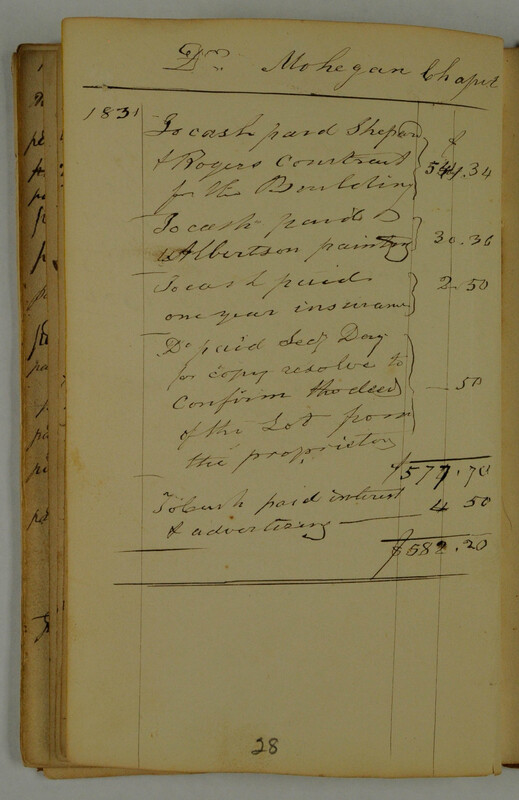 Dr. Mohegan Chapel
1831
To cash paid Shepard
& Rogers Constract
for the Bouilding 544.34
To cash paid
Albertson painting 30.36
To cash paid 2.50
one year insurance
Do paid Secy Day
for copy resolve to
Confirm the deed — 50
of the Lot from
the proprietors
$577.70
To Cash paid interest
& advertising — 4 50
$582.20
28